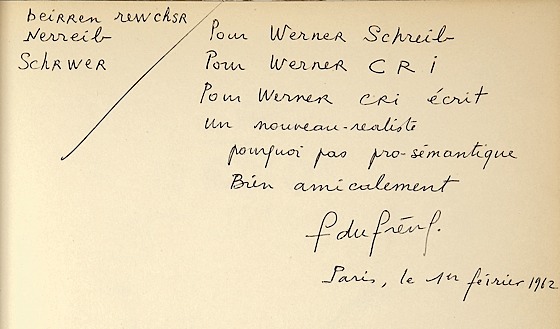 beirren rewchsr
Nerreib
Schrwer
Pour Werner Schreib
Pour Werner CRI
Pour Werner cri écrit
un nouveau-realiste
pourquoi pas pro-sémantique
Bien amicalement
f dufrêne.
Paris, le 1er février 1962